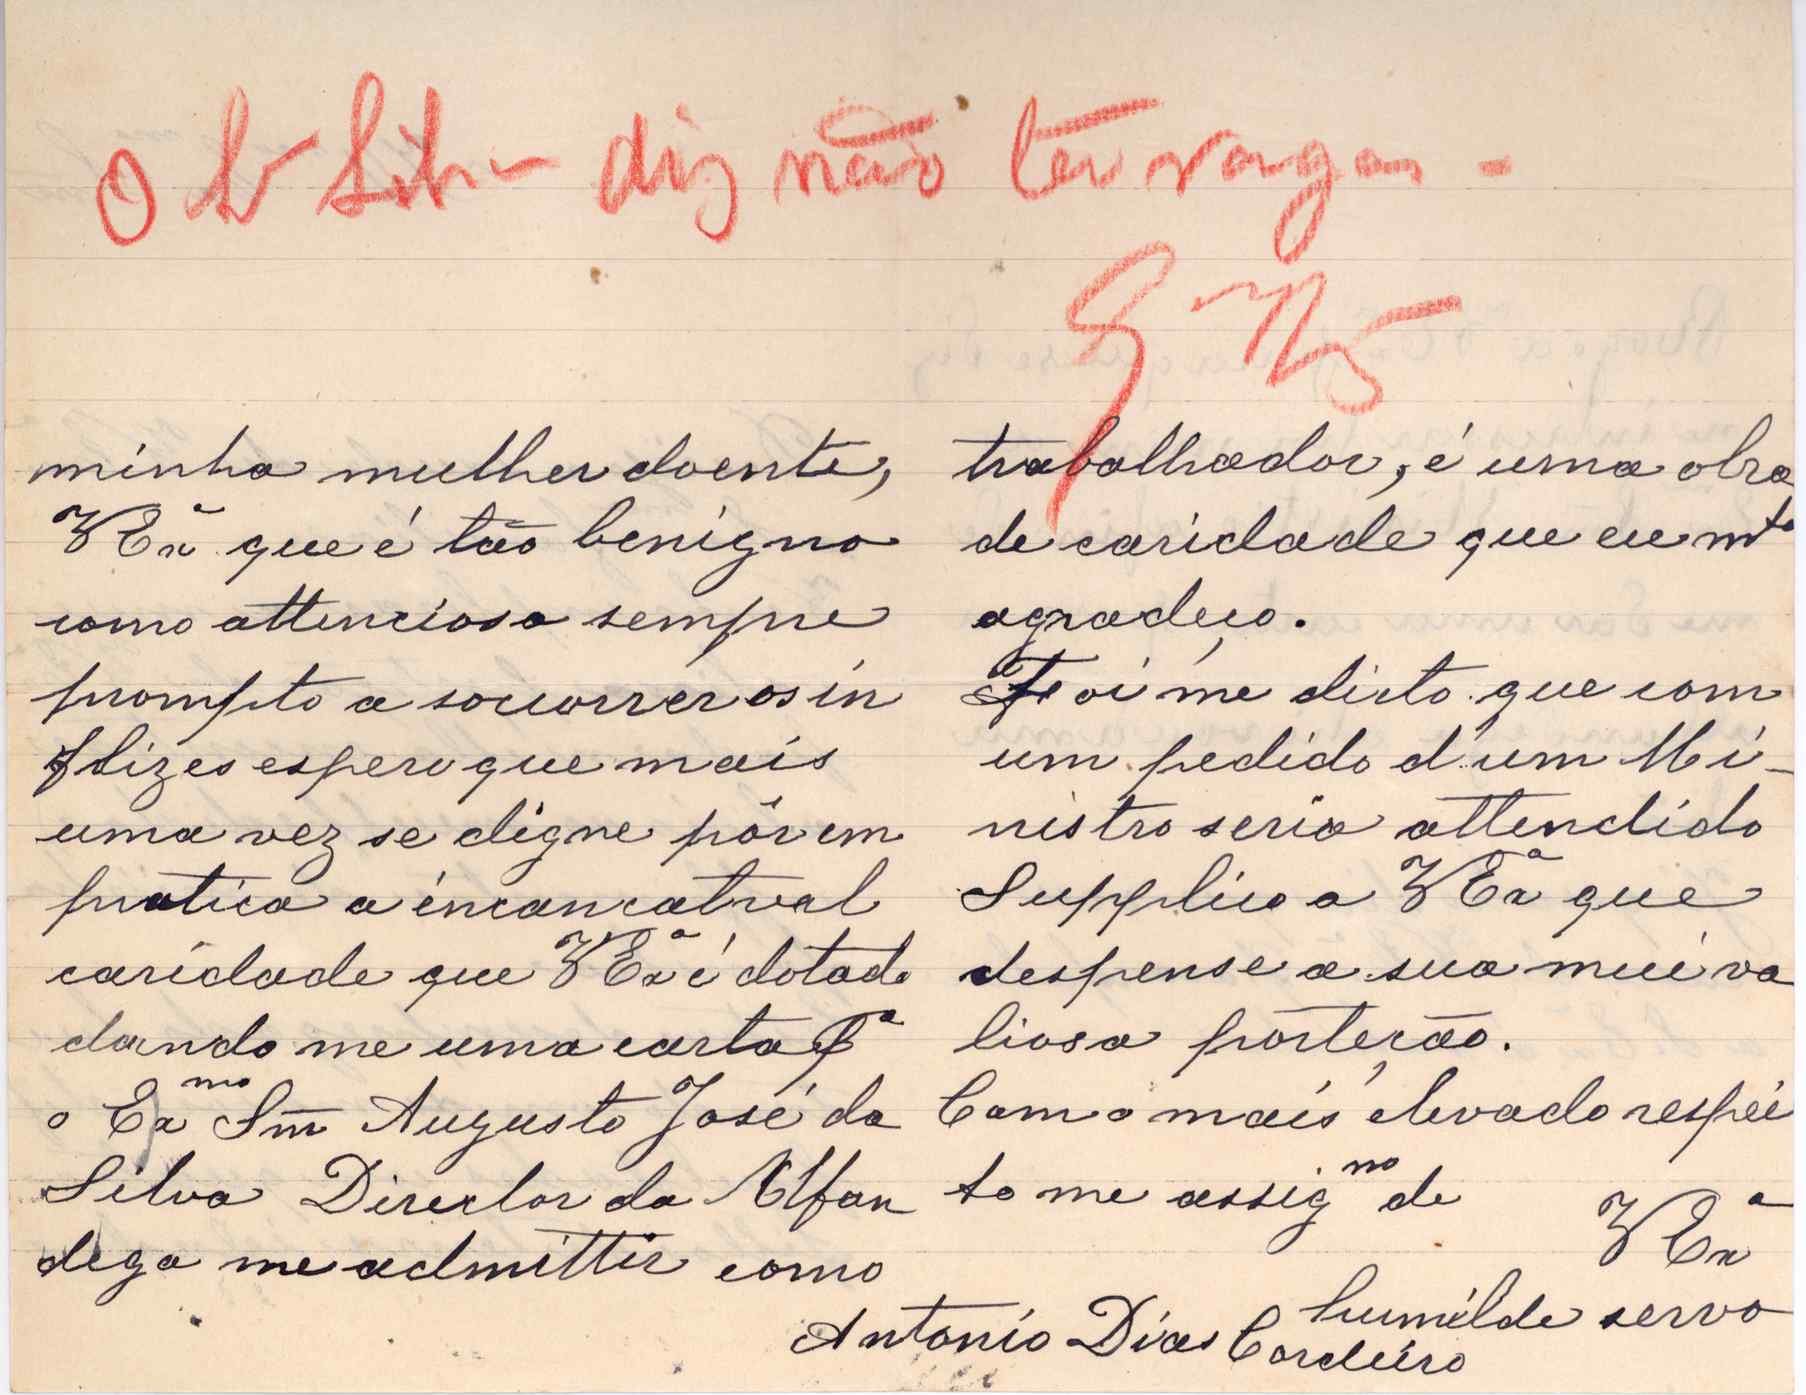 O Sr Silva diz não ter vagas -
minha mulher doente,
VExª que é tão benigno
como attencioso sempre
prompto a socorrer os in
flizes espero que mais
uma vez se digne pôr em
pratica a incancatvel
caridade que VExª é dotado
dando me uma carta pª
o Exmo Snr Augusto José da
Silva Director da Alfan
dega me admittir como
trabalhador, é uma obra
de caridade que eu mto
agradeço.
Foi me dicto que com
um pedido d'um Mi-
nistro seria attendido
Supplico a VExª que
despense a sua mui va
liosa porteção.
Com o mais elevado respei
to me assigno de
VExª
humilde servo
Antonio Dias Cordeiro